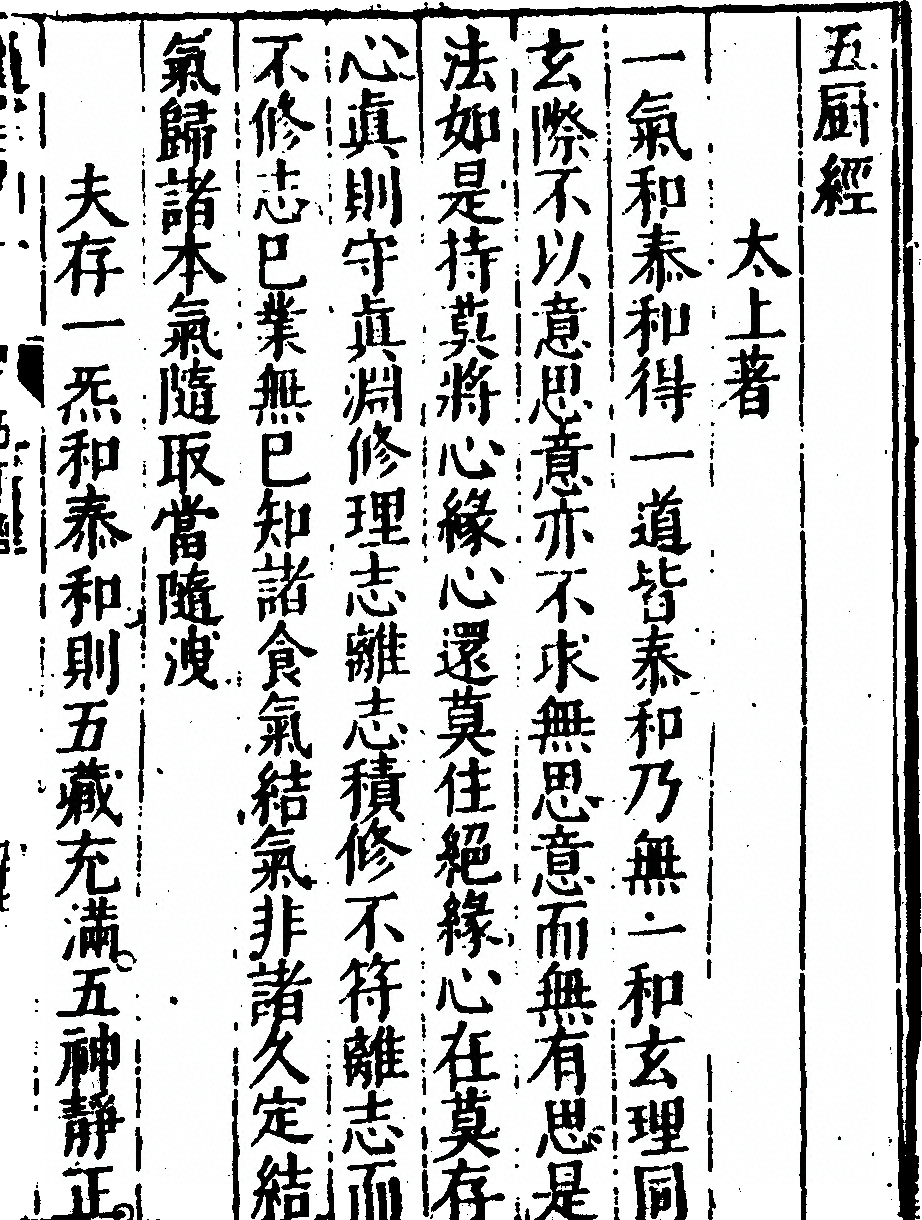 五厨經
太上著
一氣和泰和得一道皆泰和乃無一和玄理同
玄際不以意思意亦不求無思意而無有思是
法如是持莫將心緣心還莫住絕緣心在莫存
心眞則守眞淵修理志離志積修不符離志而
不修志巳業無巳知諸食氣結氣非諸久定結
氣歸諸本氣隨取當隨洩
夫存一炁和泰和則五藏充滿五神靜正